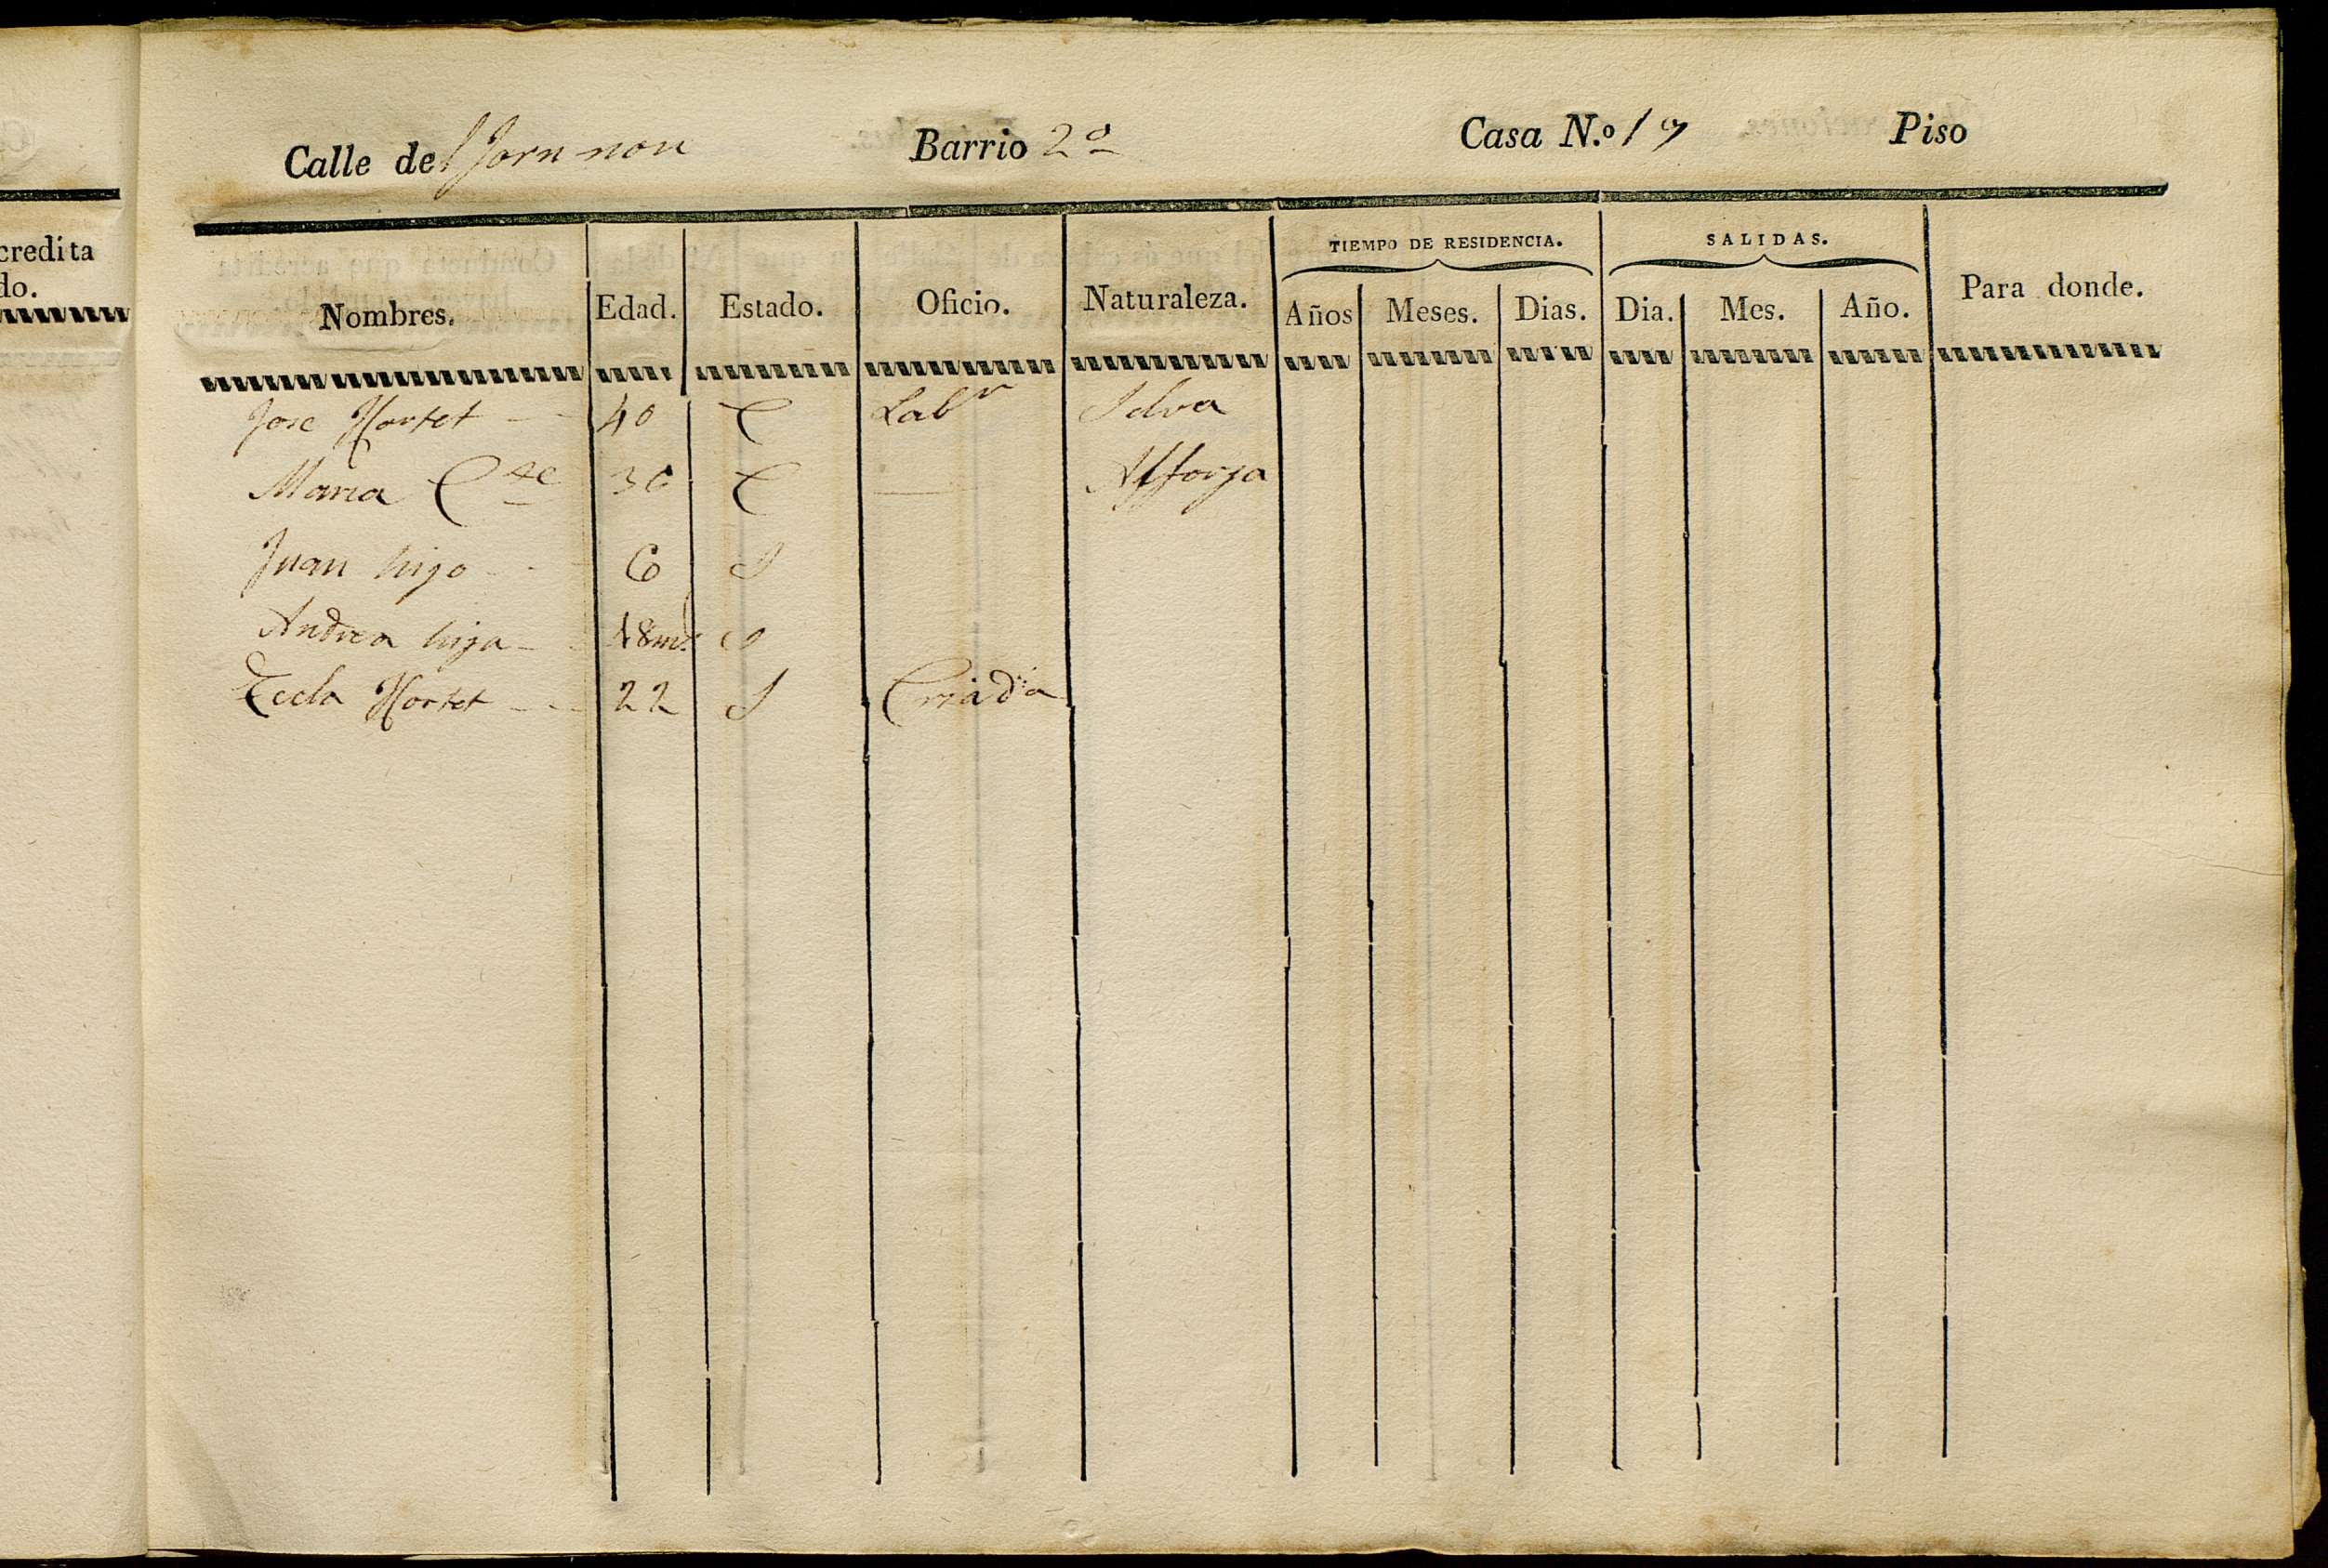 credita
do.
Calle del Forn nou Barrio 2º Casa N.º 17 Piso
Nombres. Edad. Estado. Oficio. Naturaleza. TIEMPO DE RESIDENCIA. Años Meses. Dias. SALIDAS. Dia. Mes. Año. Para donde.
Jose Hortet 40 C Labr Selva
Maria Cte 36 C — Alforja
Juan hijo 6 S
Andrea hija 18 ms S
Tecla Hortet 22 S Criada